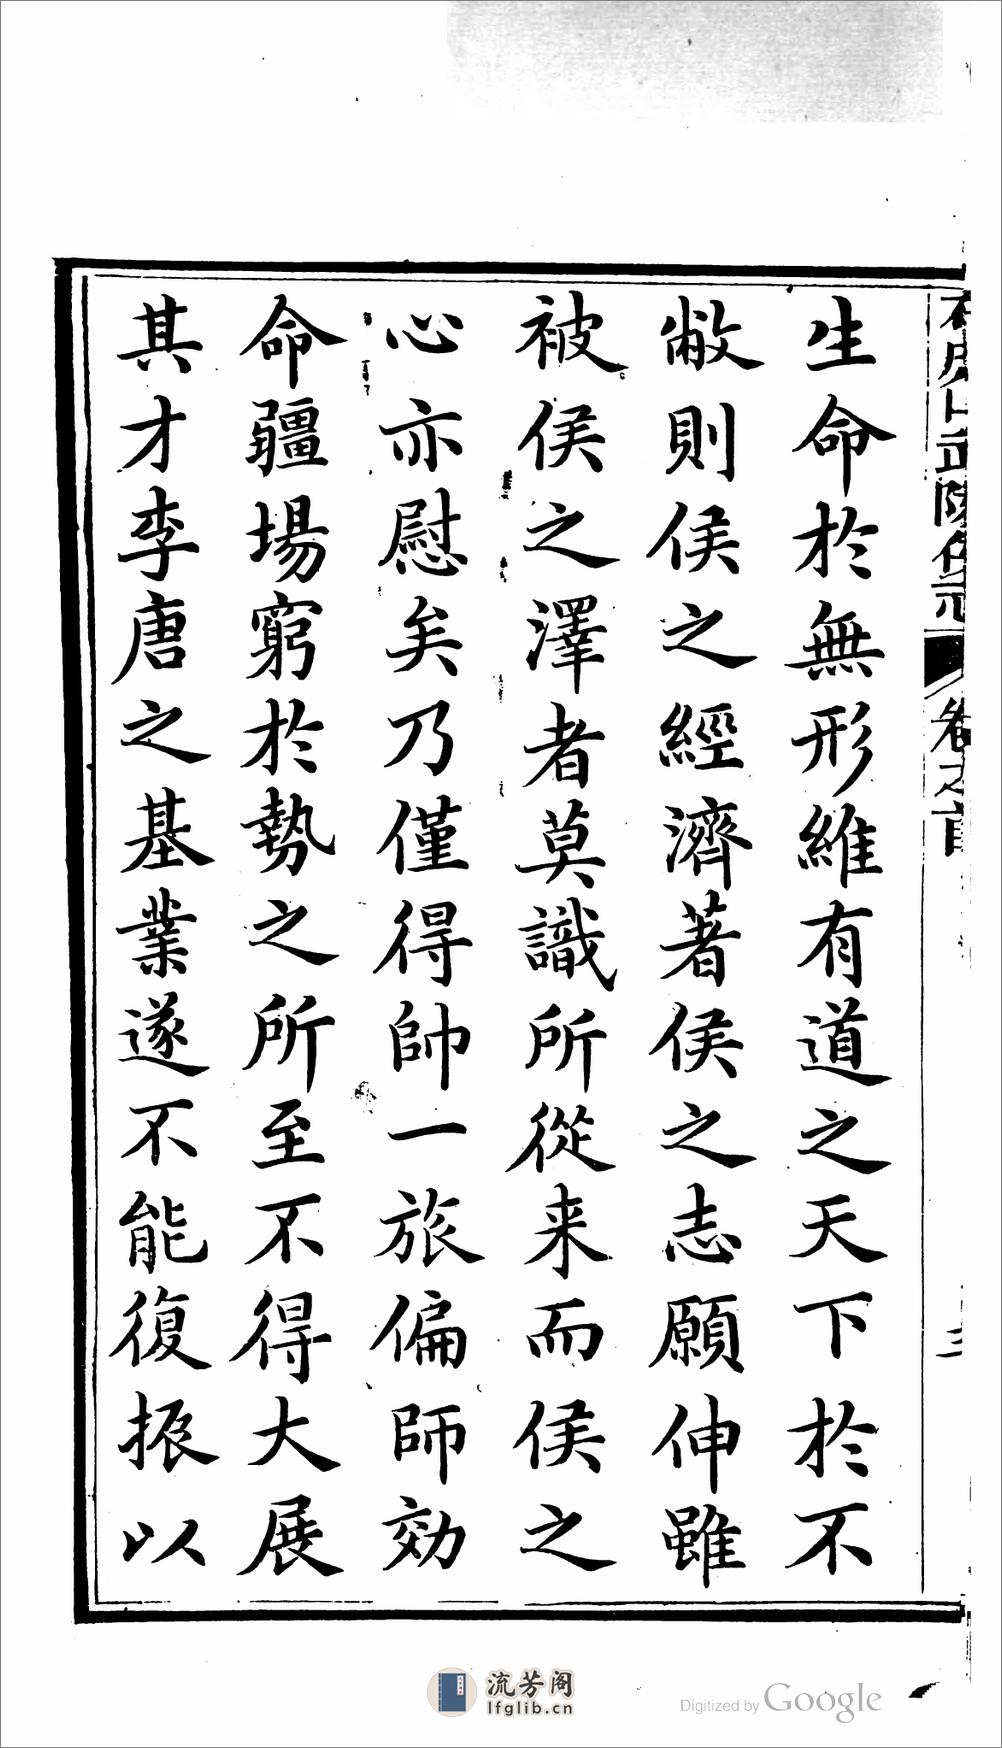 生命於無形維有道之天下於不
敝則侯之經濟著侯之志願伸雖
被侯之澤者莫識所從来而侯之
心亦慰矣乃僅得帥一旅偏師効
命疆場窮於勢之所至不得大展
其才李唐之基業遂不能復振以
卷之首
三
流芳阁
lfglib.cn
Digitized by Google